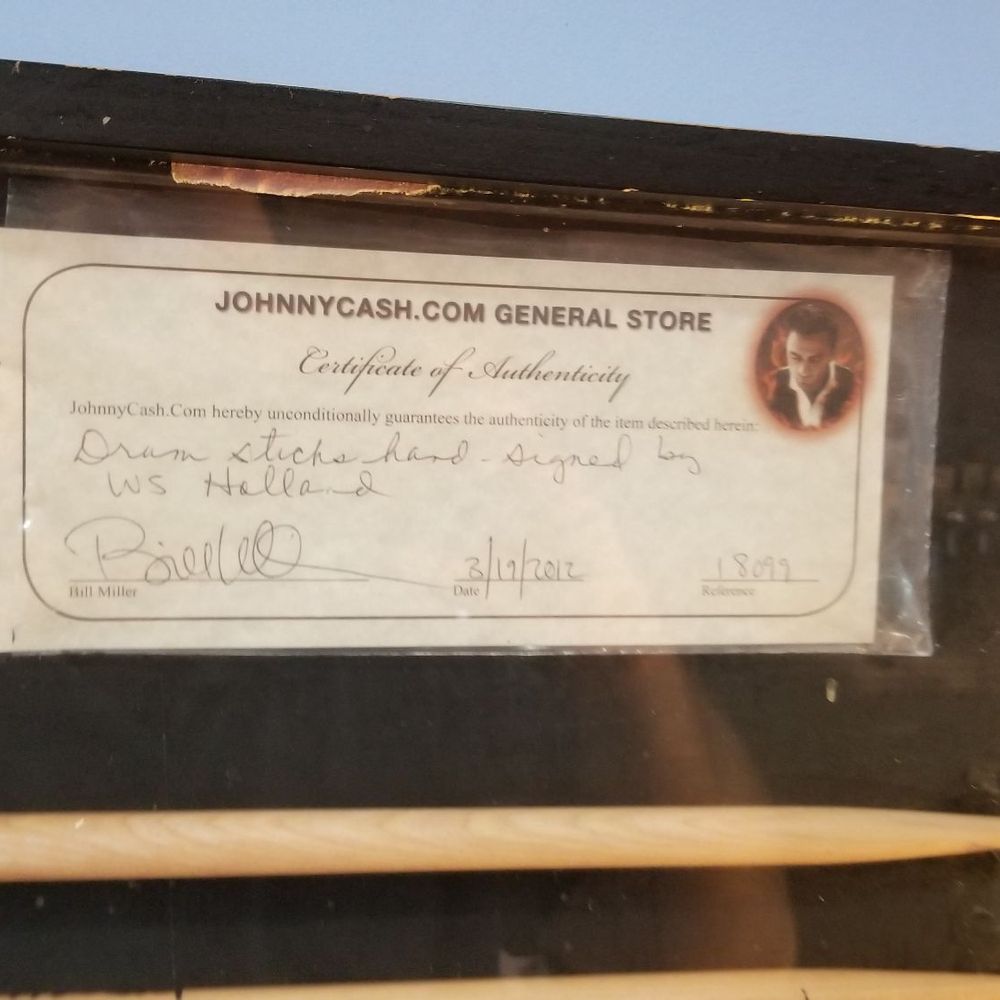 JOHNNYCASH.COM GENERAL STORE
Certificate of Authenticity
JohnnyCash.Com hereby unconditionally guarantees the authenticity of the item described herein:
Drum sticks hand-signed by
WS Holland
3/19/2012
18099
Bill Miller
Date
Reference